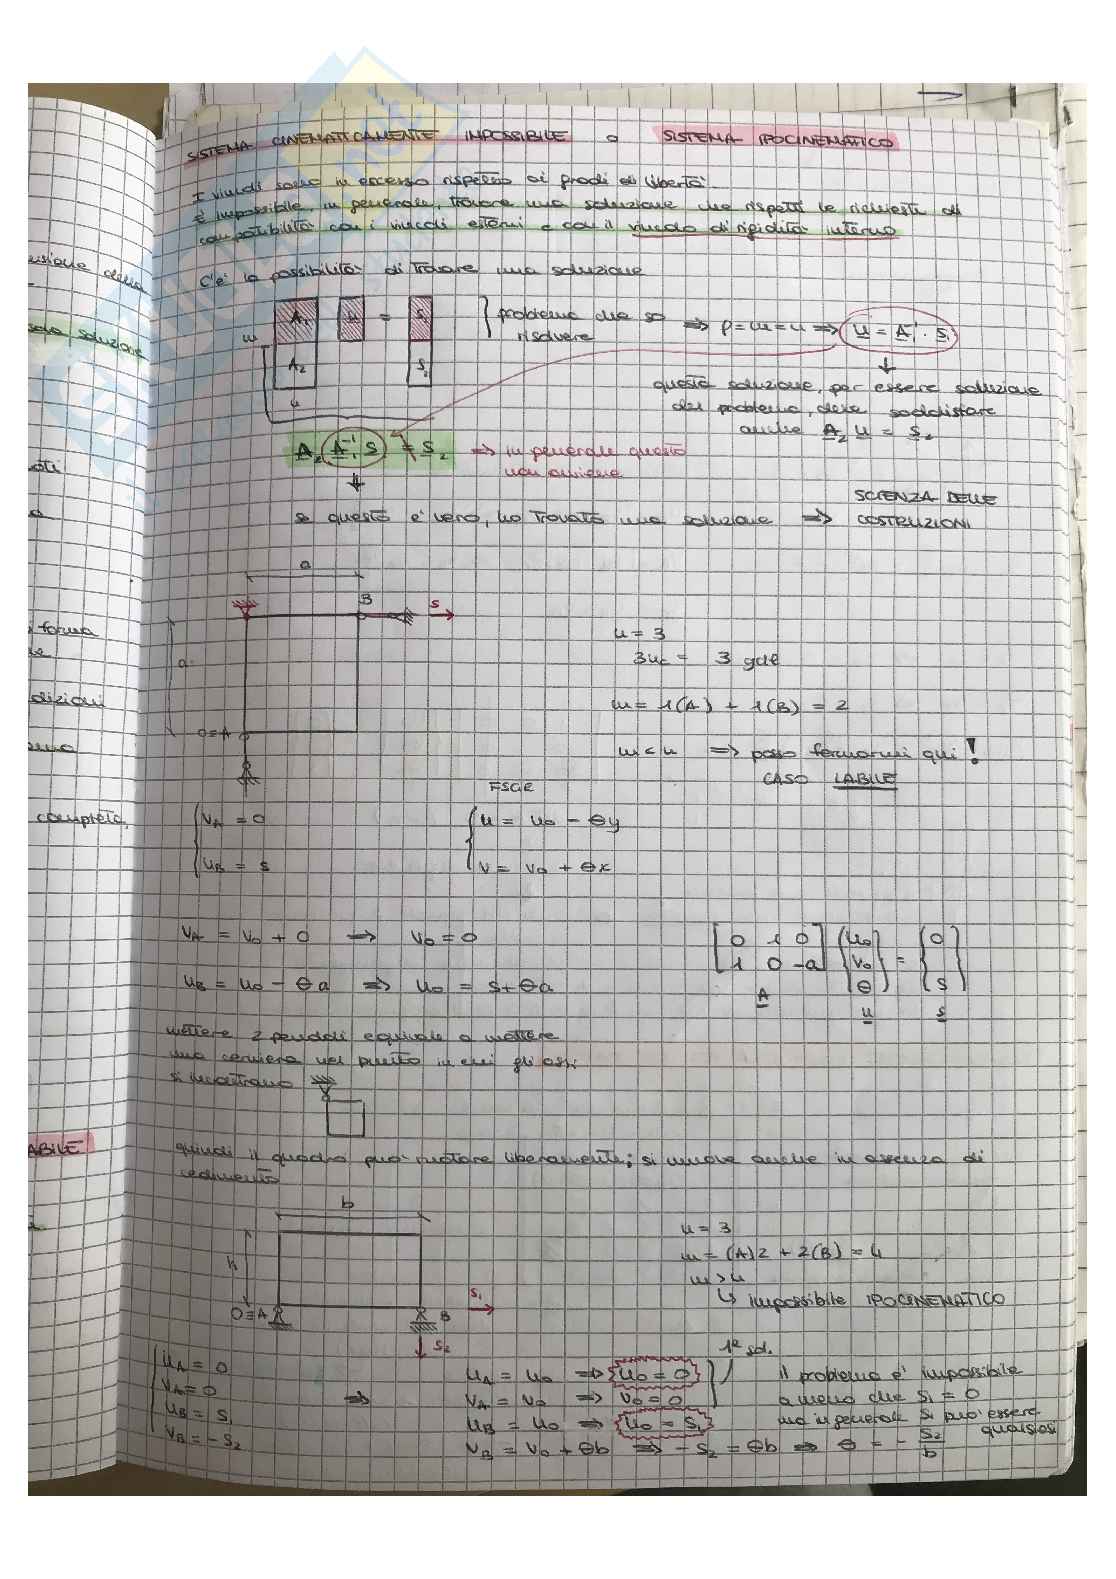 SISTEMA CINEMATICAMENTE IMPOSSIBILE o SISTEMA IPOCINEMATICO
I vincoli sono in eccesso rispetto ai gradi di libertà.
È impossibile, in generale, trovare una soluzione che rispetti le richieste di
compatibilità con i vincoli esterni e con il vincolo di rigidità interno
C'è la possibilità di trovare una soluzione
A1 u = S1 } problema che so risolvere ⇒ p = m = u ⇒ u = A1⁻¹ · S1
m
A2 S2
u
questa soluzione, per essere soluzione
del problema, deve soddisfare
anche A2 u = S2
A2 A1⁻¹ S = S2 ⇒ in generale questo
non avviene
se questo è vero, ho trovato una soluzione ⇒ SCIENZA DELLE
COSTRUZIONI
a
B S
a
O≡A
u = 3
3uc = 3 gdl
m = 1(A) + 1(B) = 2
m < u ⇒ posso fermarmi qui!
CASO LABILE
FSGR
{ vA = 0
uB = s
{ u = u0 - θy
v = v0 + θx
vA = v0 + 0 ⇒ v0 = 0
uB = u0 - θa ⇒ u0 = s + θa
[0 1 0] {u0} = {0}
[1 0 -a] {v0}
{θ} {s}
A u s
mettere 2 pendoli equivale a mettere
una cerniera nel punto in cui gli assi
si incontrano
quindi il quadro può ruotare liberamente; si muove anche in assenza di
cedimento
b
h
O≡A B
S1
S2
u = 3
m = (A)2 + 2(B) = 4
m > u
↳ impossibile IPOCINEMATICO
{ uA = 0
vA = 0
uB = S1
vB = -S2
⇒
uA = u0 ⇒ {u0 = 0}
vA = v0 ⇒ v0 = 0
uB = u0 ⇒ {u0 = S1}
vB = v0 + θb ⇒ -S2 = θb ⇒ θ = - S2/b
1ª sol.
il problema è impossibile
a meno che S1 = 0
ma in generale S1 può essere
qualsiasi
usione della
sola soluzione
oti
forma
dizioni
completo.
ABILE